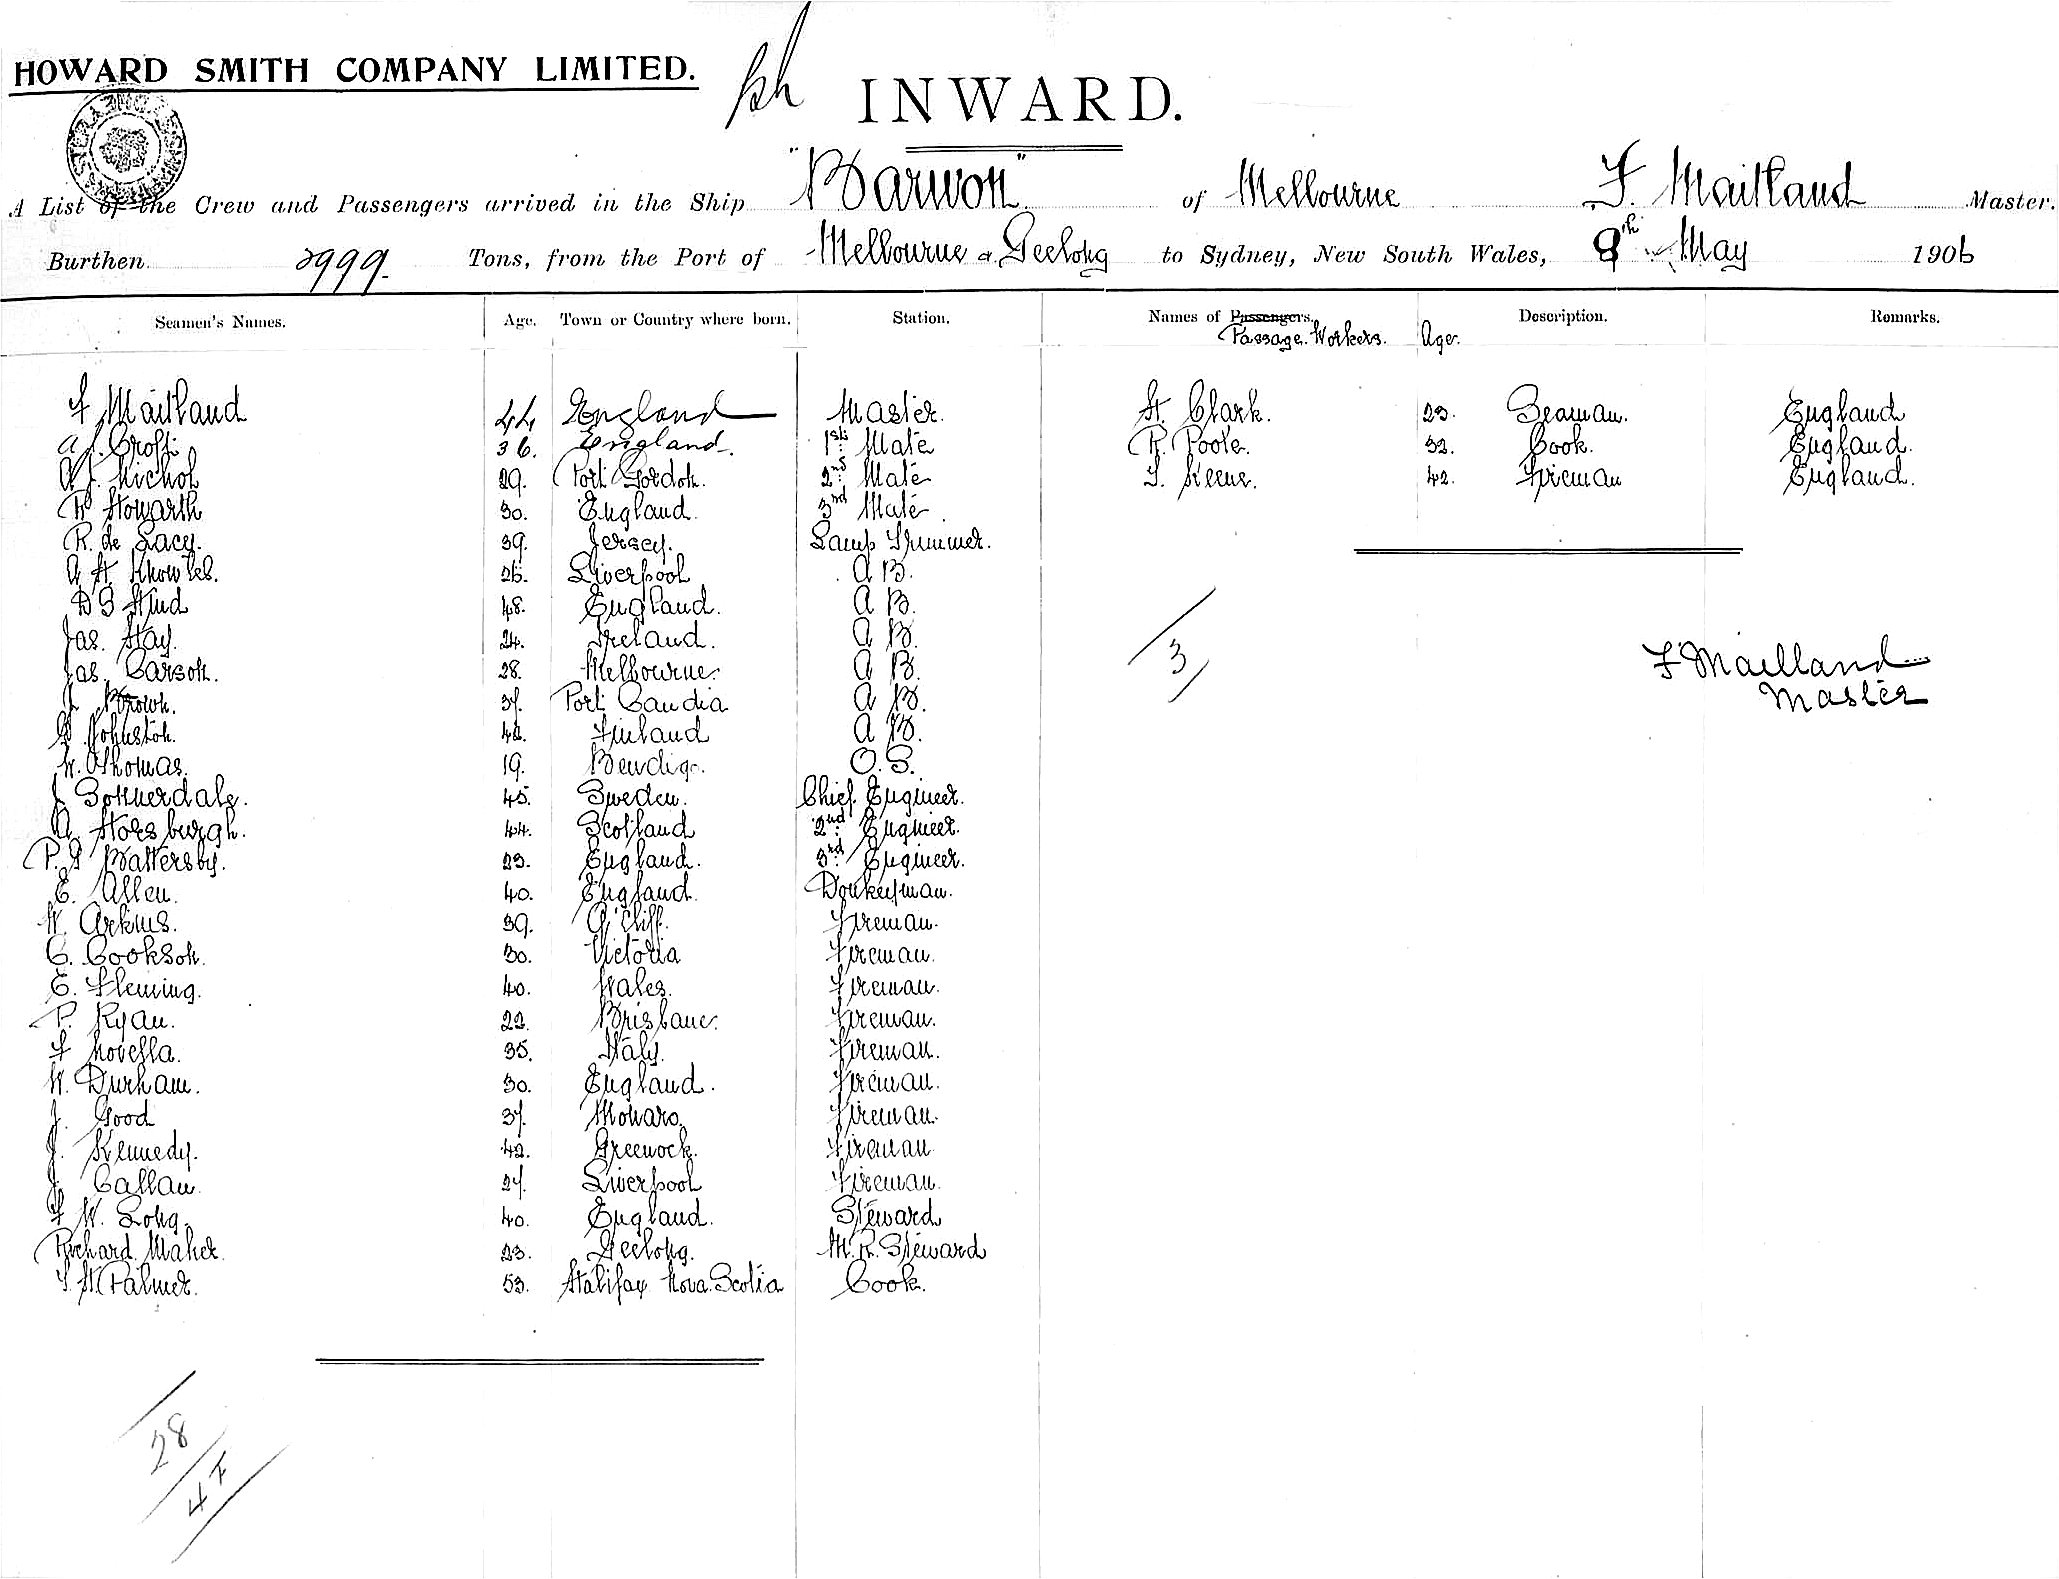 HOWARD SMITH COMPANY LIMITED.
INWARD.
A List of the Crew and Passengers arrived in the Ship "Barwon" of Melbourne F. Maitland Master.
Burthen 2999. Tons, from the Port of Melbourne & Geelong to Sydney, New South Wales, 8th May 1906
Seamen's Names. Age. Town or Country where born. Station. Names of Passengers. Description. Remarks.
Passage Workers. Age.
F Maitland 44 England Master. H. Clark. 23. Seaman. England
36. England. 1st Mate R. Poole. 32. Cook. England.
Nichol 29. Port Gordon. 2nd Mate T. Keene. 42. Fireman England.
Howarth 30. England. 3rd Mate
R. de Lacy. 39. Jersey. Lamp Trimmer.
A H Knowles. 26. Liverpool A B.
D G Hind 48. England. A B.
Jas. Hay. 24. Ireland. A B.
Jas. Carson. 28. Melbourne. A B.
J Brown. 37. Port Candia A B.
Johnston. 42. Finland A B.
W. Thomas. 19. Bendigo. O. S.
J Sonnerdale. 45. Sweden. Chief Engineer.
A. Horsburgh. 44. Scotland 2nd Engineer.
Battersby. 23. England. 3rd Engineer.
E. Allen. 40. England. Donkeyman.
W. 39. Fireman.
C. Cookson. 30. Victoria Fireman.
E. Fleming. 40. Wales. Fireman.
P. Ryan. 22. Brisbane. Fireman.
F Novella. 35. Italy. Fireman.
W. Durham. 30. England. Fireman.
J. Good 37. Monaro. Fireman.
J. Kennedy. 42. Greenock. Fireman
J Callan. 27. Liverpool Fireman.
F W. Long. 40. England. Steward
Richard Maher. 23. Geelong. M. R. Steward
Palmer. 53. Halifax Nova Scotia Cook.
3
F Maitland
Master
28